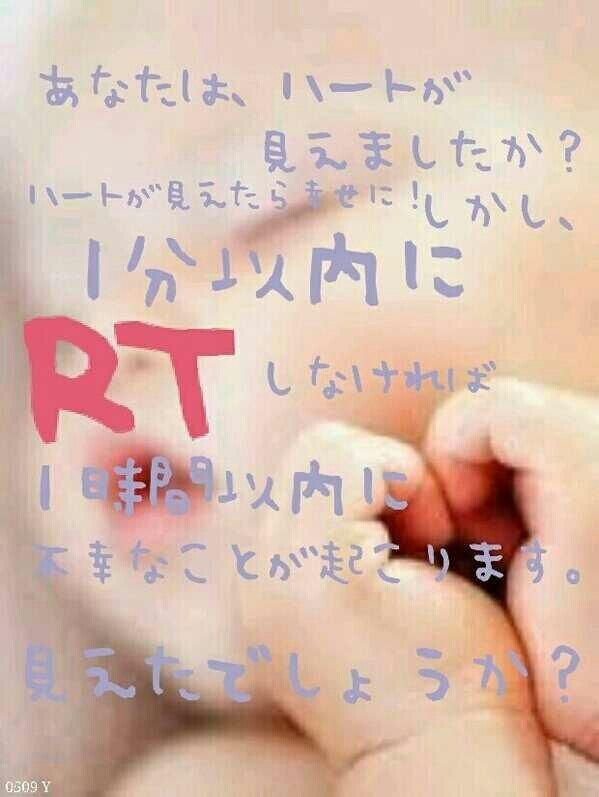 あなたは、ハートが
見えましたか?
ハートが見えたら幸せに!しかし、
1分以内に
RTしなければ
1時間以内に
不幸なことが起こります。
見えたでしょうか?
0509 Y